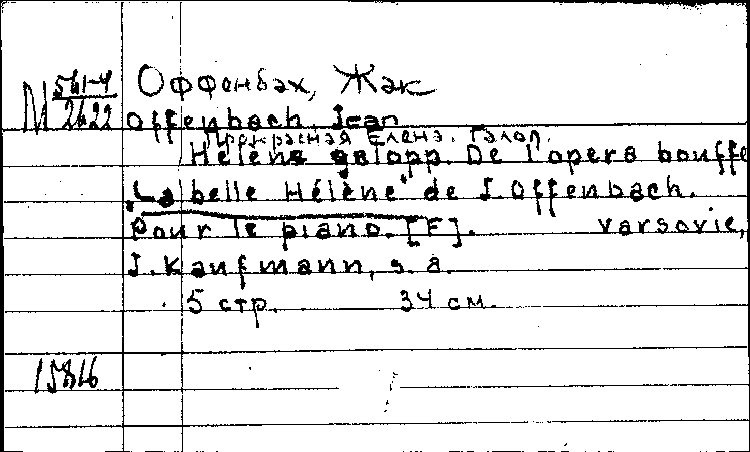 М 561-4 Оффенбах, Жак
2622 Offenbach, Jean
Прекрасная Елена. Галоп.
Hélène galopp. De l'opera bouffe
"La belle Hélène" de J. Offenbach.
Pour le piano. [F]. Varsovie,
J. Kaufmann, s. a.
5 стр. 34 см.
15816